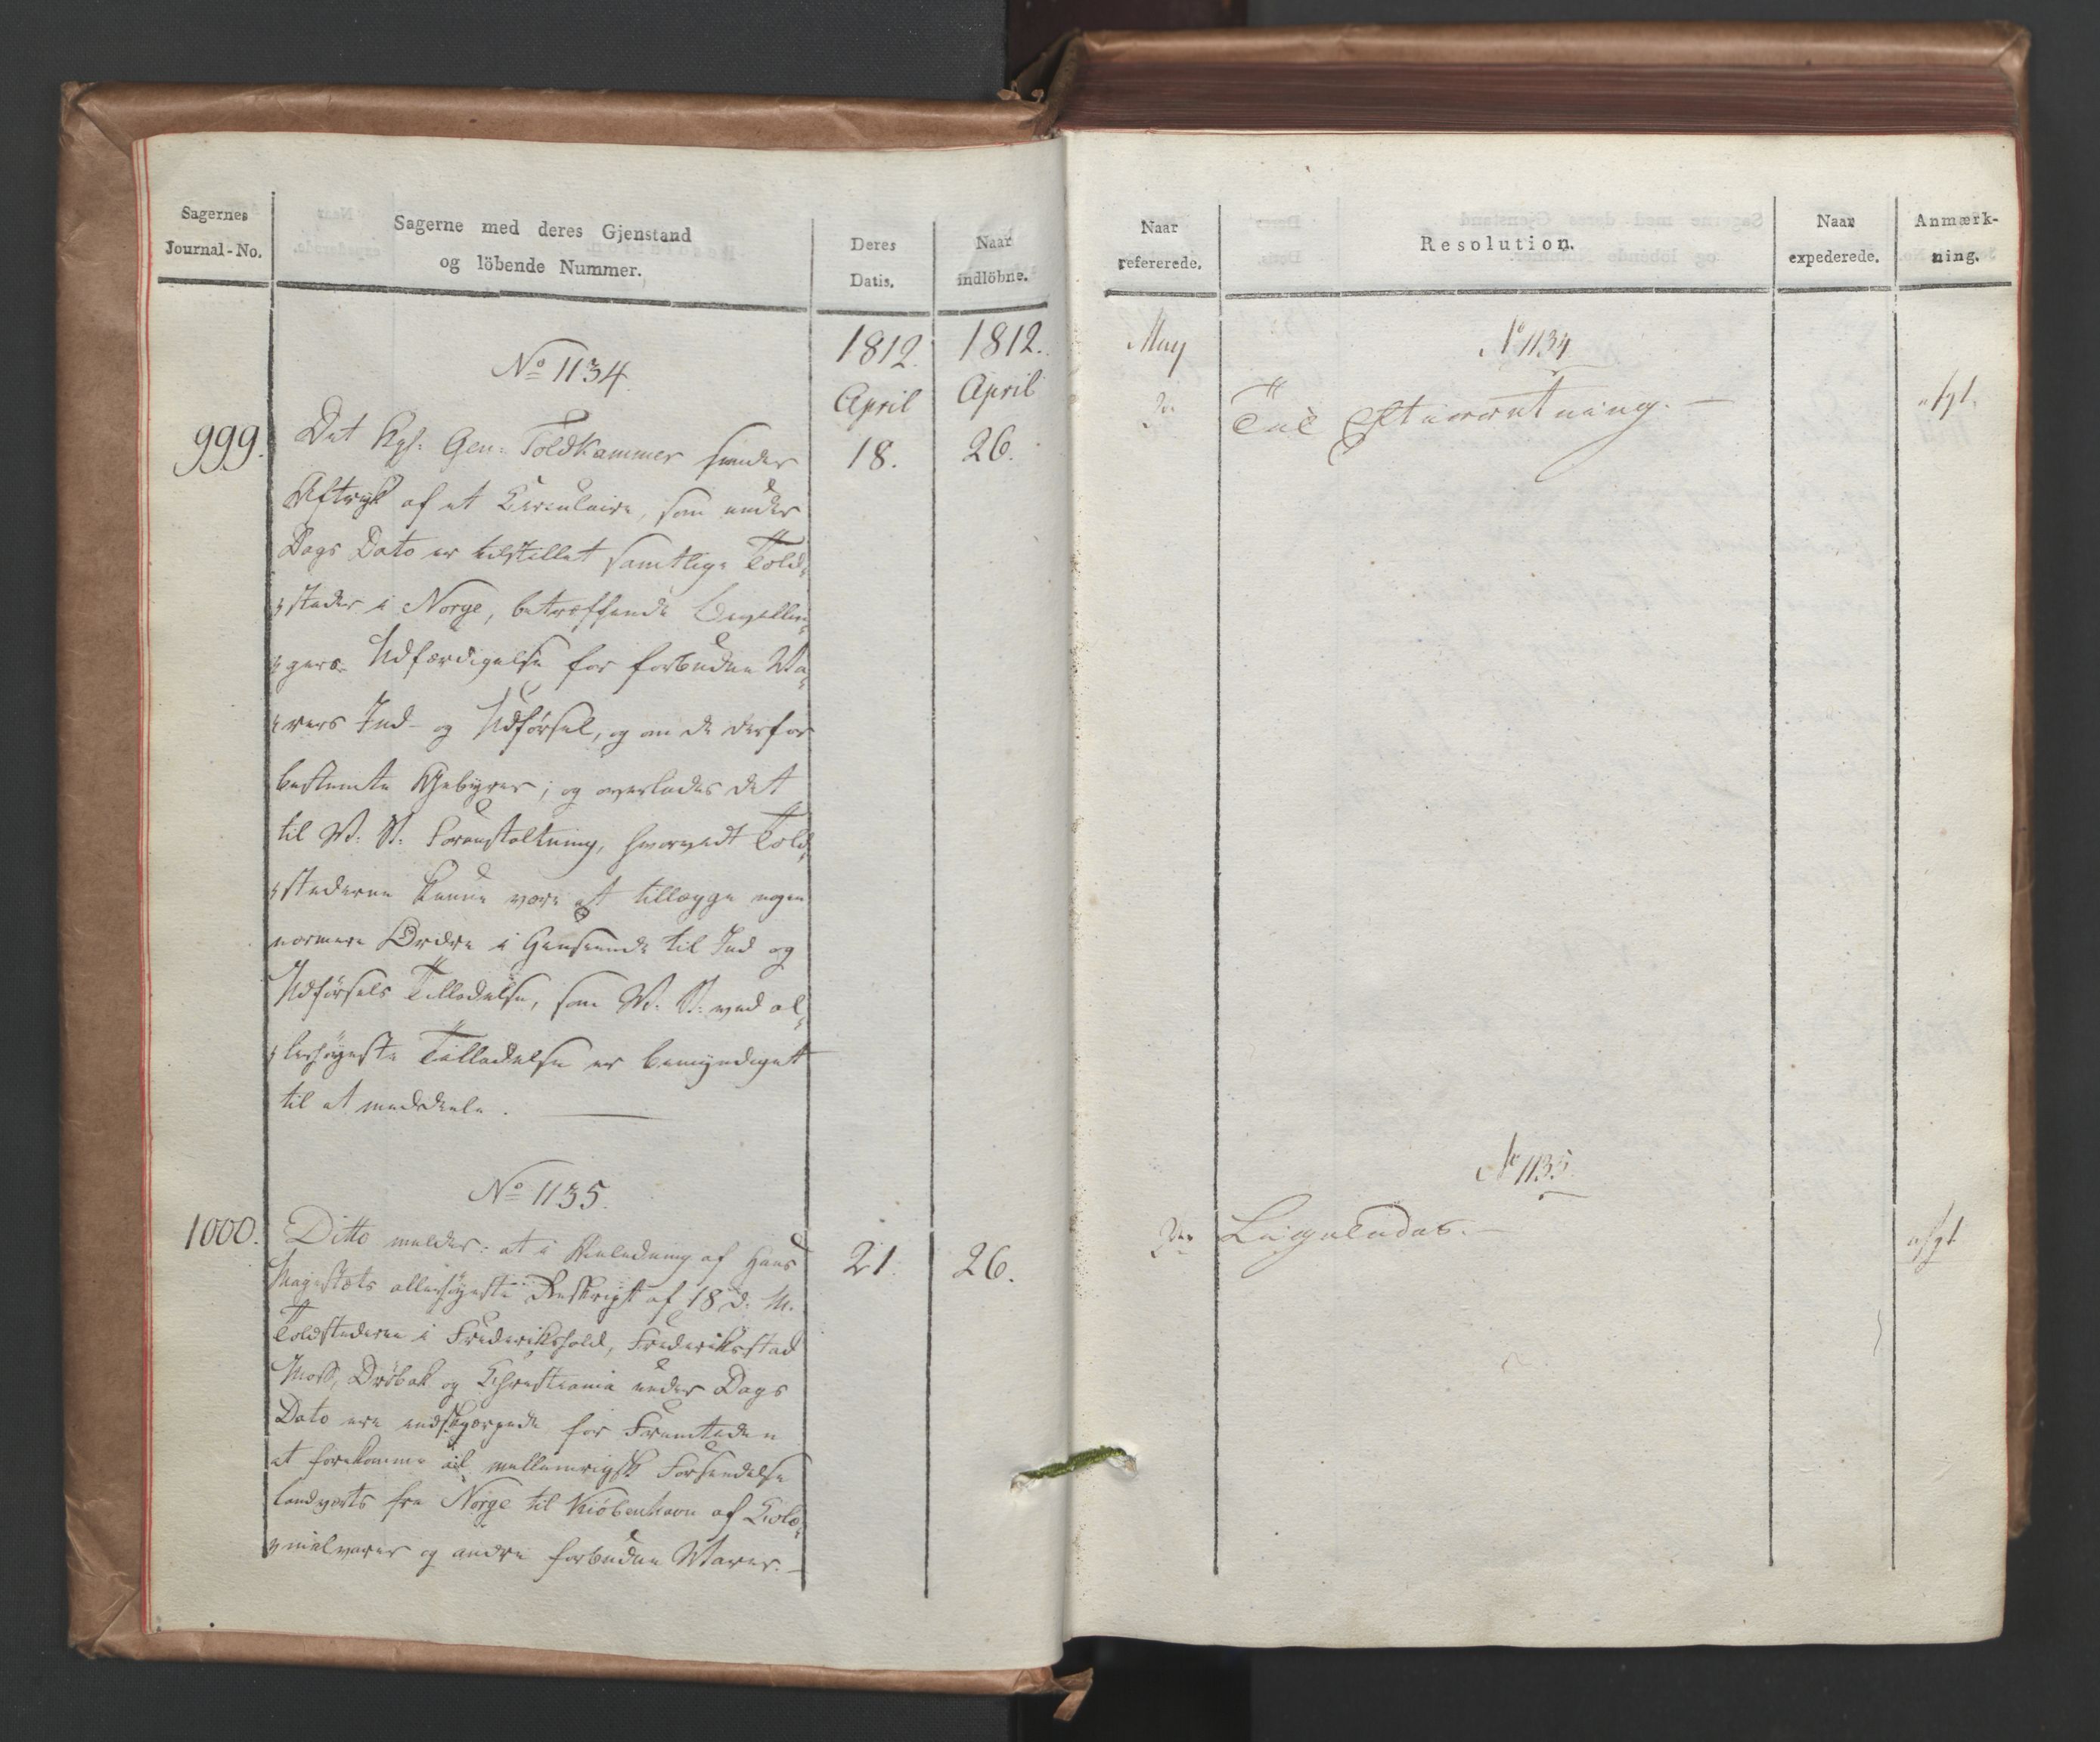 Sagernes
Journal-No.
Sagerne med deres Gjenstand
og löbende Nummer.
Deres
Datis.
Naar
indlöbne.
No 1134.
1812.
1812.
April
April
999.
18.
26.
Det Kgl: Gen: Toldkammer sender
Aftryk af et Circulaire, som under
Dags Dato er tilstillet samtlige Told¬
stæder i Norge, betræffende Bevillin¬
gers Udfærdigelse for forbudne Va¬
rers Ind- og Udførsel, og om de derfor
bestemte Gebyrer; og overlades det
til R: Foranstaltning, hvorvidt Told¬
stæderne kunne være at tillægge nogen
nærmere Ordre i Henseende til Ind og
Udførsels Tilladelse, som R: ved al¬
lerhøyeste Tilladelse er bemyndiget
til at meddeele.
No 1135.
1000.
21.
26.
Ditto melder: at i Anledning af Hans
Majestæts allerhøyeste Reskript af 18 d: M.
Toldstæderne i Frederikshald, Frederiksstad
Moss, Drøbak og Christiania under Dags
Dato ere indskjærpede for Fremtiden
at forekomme al mellemrigsk Forsendelse
landværts fra Norge til Kiøbenhavn af Colo¬
nialvarer og andre forbudne Varer.
Naar
refererede.
Resolution.
Naar
expederede.
Anmærk-
ning.
May
No 1134
2en
Til Efterretning.
afgt.
No 1135.
2en
Ligeledes.
afgt